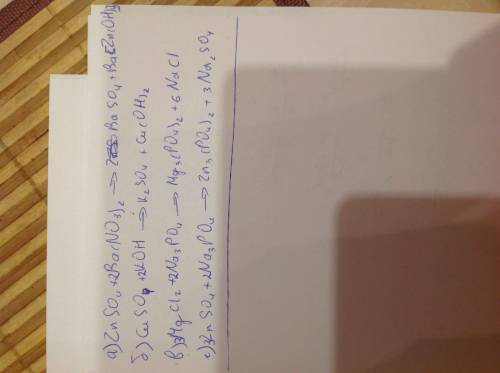 а) ZnSO₄ + 2Ba(NO₃)₂ → BaSO₄ + Ba[Zn(OH)₄]
б) CuSO₄ + 2KOH → K₂SO₄ + Cu(OH)₂
в) 3MgCl₂ + 2Na₃PO₄ → Mg₃(PO₄)₂ + 6NaCl
г) 3ZnSO₄ + 2Na₃PO₄ → Zn₃(PO₄)₂ + 3Na₂SO₄